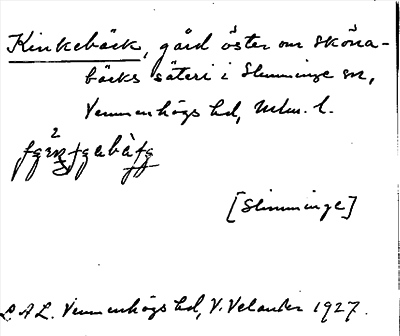 Kinkebäck, gård öster om Sköna-
bäcks säteri i Slimminge sn,
Vemmenhögs hd, Mlm. l.
[Slimminge]
L.A.L. Vemmenhögs hd, V. Velander 1927.